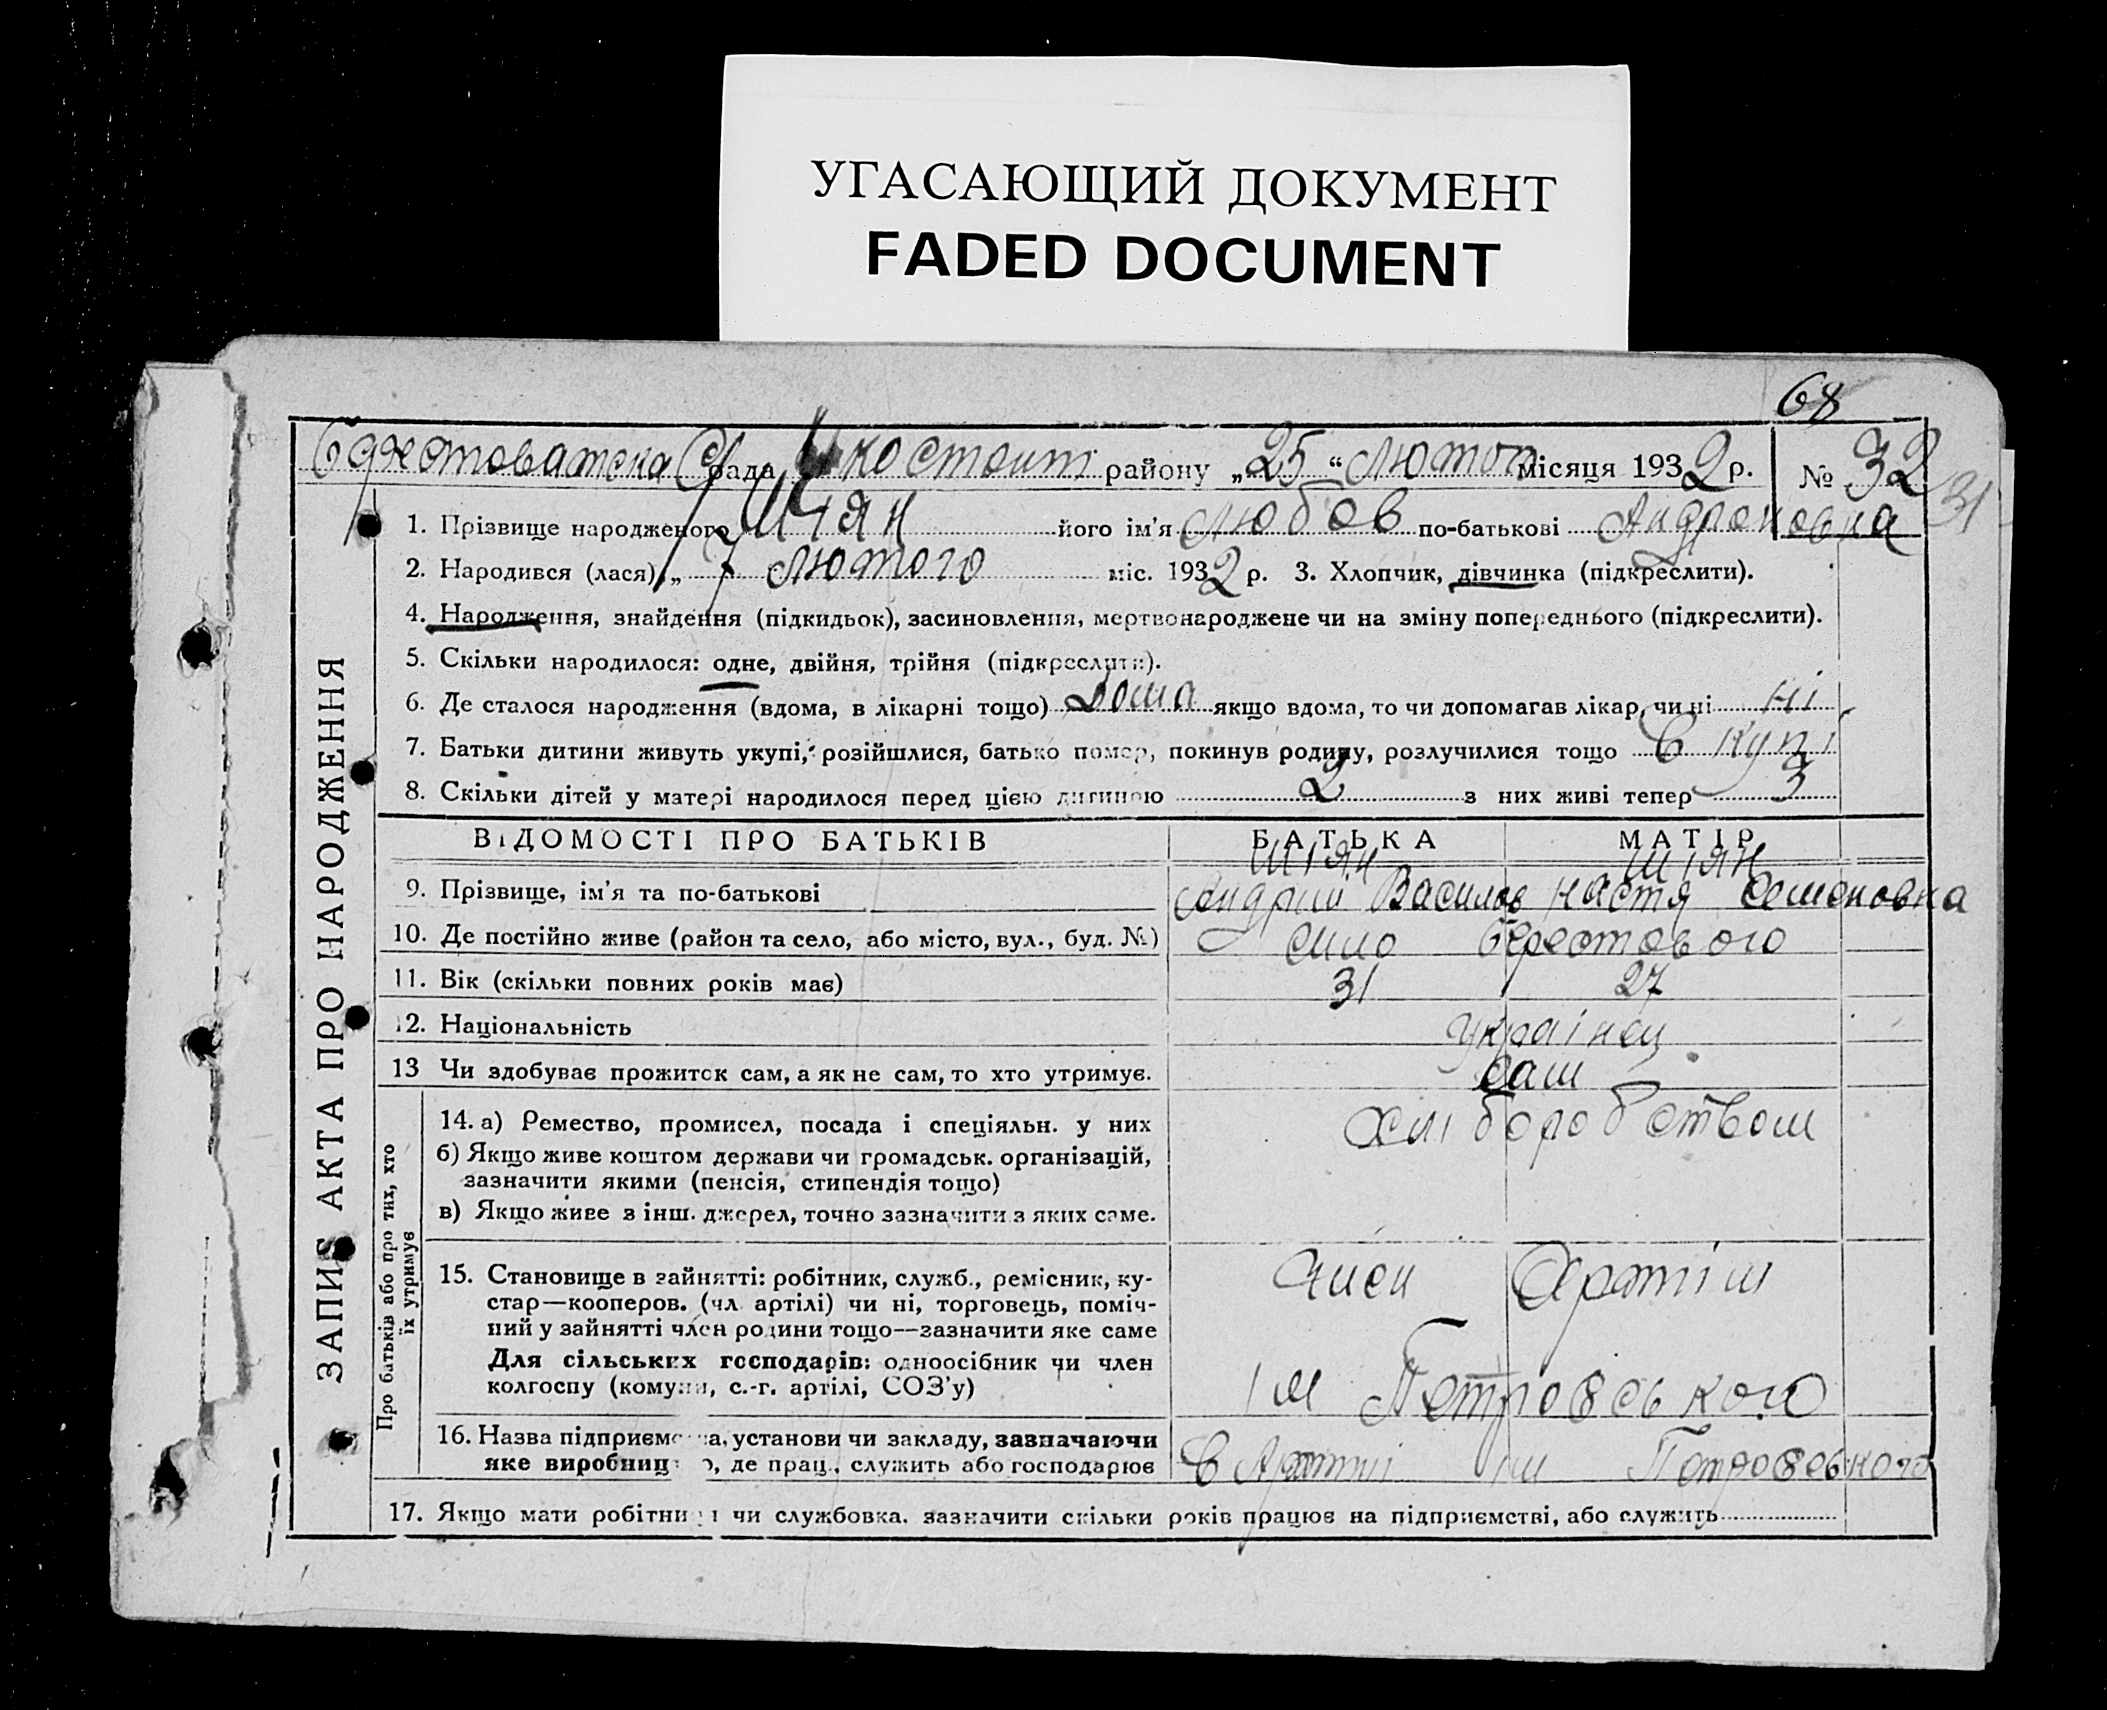 УГАСАЮЩИЙ ДОКУМЕНТ
FADED DOCUMENT
68
рада району „25“ лютого місяця 1932 р. № 32
31
1. Прізвище народженого Шіян його ім'я Любов по-батькові Андроновна
2. Народився (лася) „ 7 лютого міс. 1932 р. 3. Хлопчик, дівчинка (підкреслити).
4. Народження, знайдення (підкидьок), засиновлення, мертвонароджене чи на зміну попереднього (підкреслити).
5. Скільки народилося: одне, двійня, трійня (підкреслити).
6. Де сталося народження (вдома, в лікарні тощо) Дома якщо вдома, то чи допомагав лікар, чи ні ні
7. Батьки дитини живуть укупі, розійшлися, батько помер, покинув родину, розлучилися тощо в купі
8. Скільки дітей у матері народилося перед цією дитиною 2 з них живі тепер 3
ВІДОМОСТІ ПРО БАТЬКІВ БАТЬКА МАТІР
Шіян Шіян
9. Прізвище, ім'я та по-батькові Андрій Василов Настя Семеновна
10. Де постійно живе (район та село, або місто, вул., буд. №) село Берестового
11. Вік (скільки повних років має) 31 27
12. Національність українец
13 Чи здобуває прожиток сам, а як не сам, то хто утримує. сам
14. а) Ремество, промисел, посада і спеціяльн. у них хліборобством
б) Якщо живе коштом держави чи громадськ. організацій,
зазначити якими (пенсія, стипендія тощо)
в) Якщо живе з інш. джерел, точно зазначити з яких саме.
15. Становище в зайнятті: робітник, служб., ремісник, ку-
стар—кооперов. (чл. артілі) чи ні, торговець, поміч-
ний у зайнятті член родини тощо—зазначити яке саме
Для сільських господарів: одноосібник чи член
колгоспу (комуни, с.-г. артілі, СОЗ'у)
член Артілі
ім Петровського
16. Назва підприємства, установи чи закладу, зазначаючи
яке виробництво, де прац., служить або господарює в Артілі ім Петровського
17. Якщо мати робітниця чи службовка, зазначити скільки років працює на підприємстві, або служить
ЗАПИС АКТА ПРО НАРОДЖЕННЯ
Про батьків або про тих, хто
їх утримує